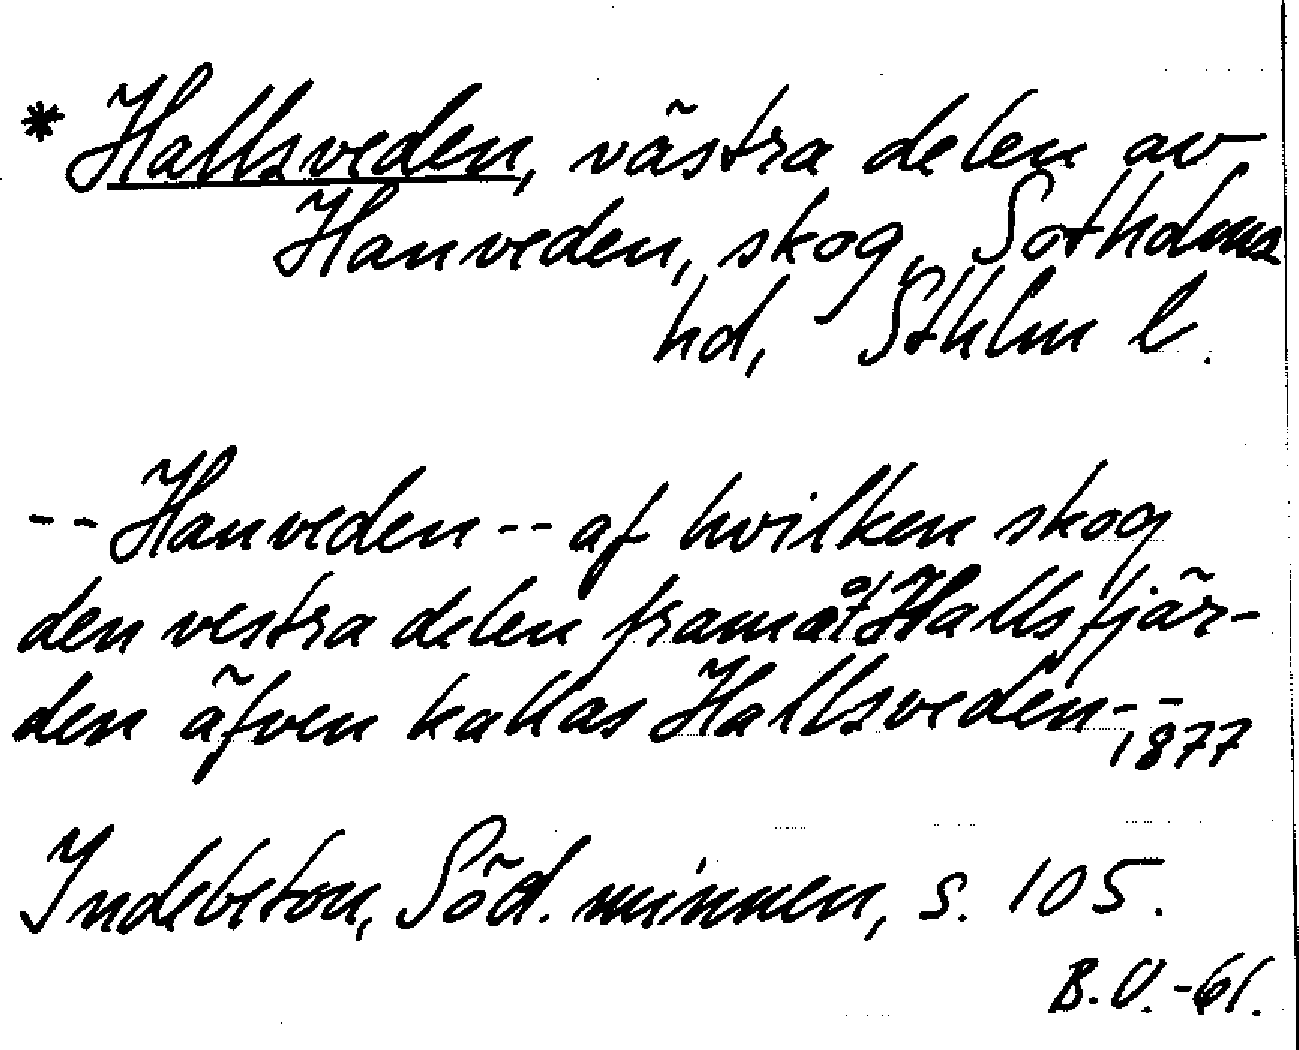 * Hallsveden, västra delen av
Hanveden, skog, Sotholms
hd, Sthlm l.
-- Hanveden -- af hvilken skog
den vestra delen framåt Hallsfjär-
den äfven kallas Hallsveden --
1877
Indebetou, Söd. minnen, s. 105.
B.U. -61.